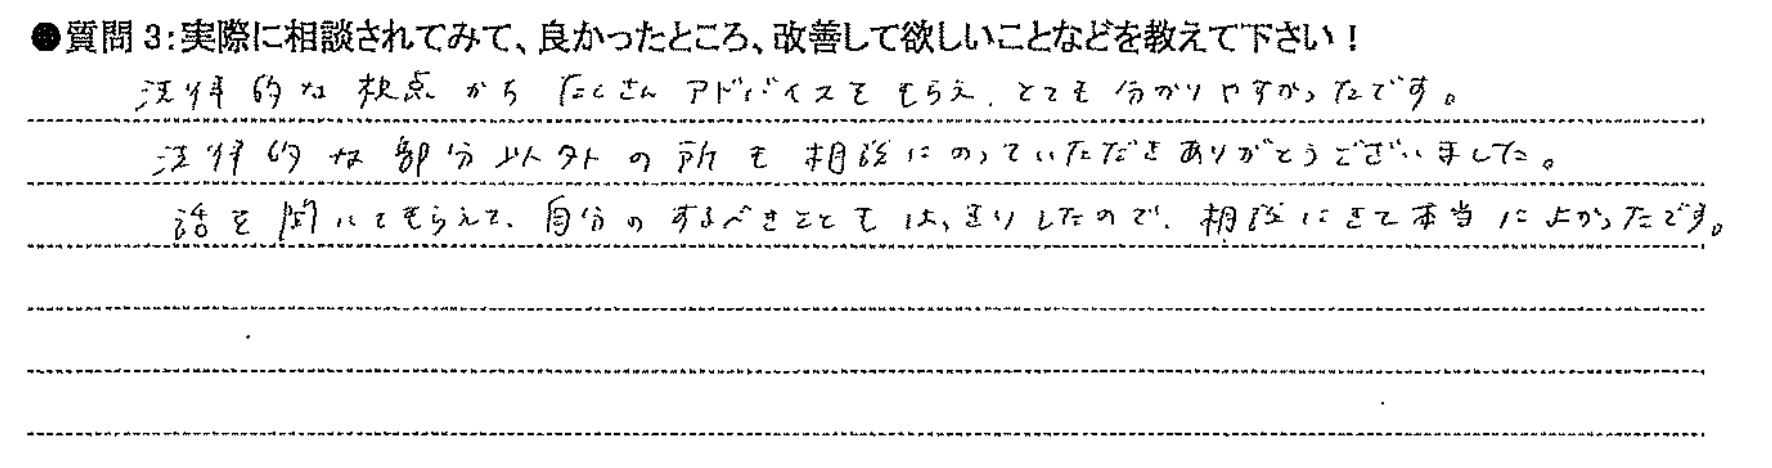 ●質問3:実際に相談されてみて、良かったところ、改善して欲しいことなどを教えて下さい！
法律的な視点からたくさんアドバイスをもらえ、とても分かりやすかったです。
法律的な部分以外の所も相談にのっていただきありがとうございました。
話を聞いてもらえて、自分のするべきこともはっきりしたので、相談にきて本当によかったです。